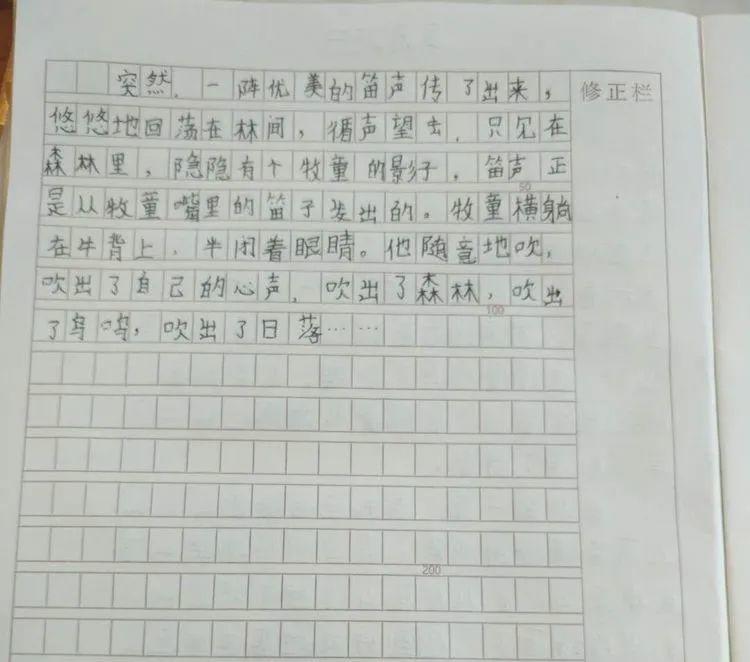 突然，一阵优美的笛声传了出来，
修正栏
悠悠地回荡在林间，循声望去，只见在
森林里，隐隐有个牧童的影子，笛声正
50
是从牧童嘴里的笛子发出的。牧童横躺
在牛背上，半闭着眼睛。他随意地吹，
吹出了自己的心声，吹出了森林，吹出
100
了鸟鸣，吹出了日落……
200